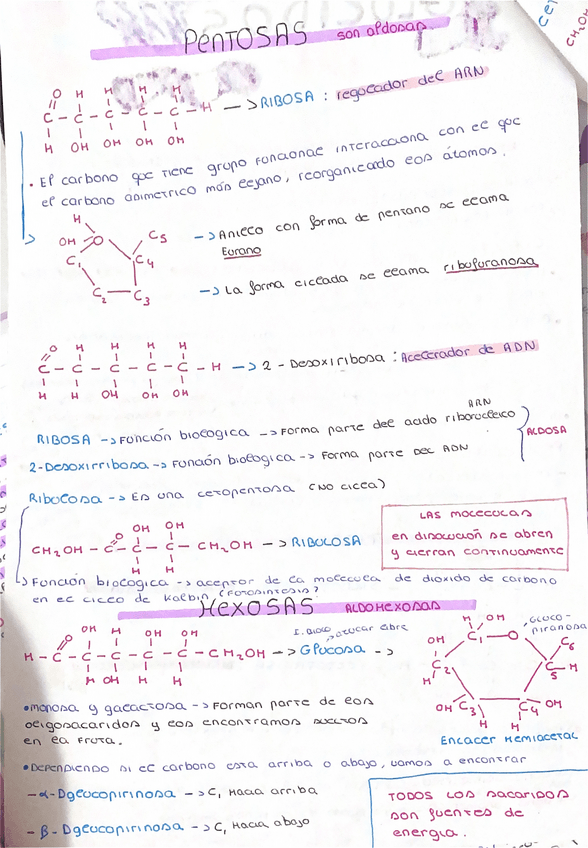 PENTOSAS son aldosas
O H H H H
C - C - C - C - C - H -> RIBOSA : regulador del ARN
H OH OH OH OH
• El carbono que tiene grupo funcional interacciona con el que
el carbono asimetrico más lejano, reorganizando los átomos.
H
OH O C5 -> Anillo con forma de pentano se llama
C1 C4 Furano
C2 — C3 -> La forma ciclada se llama ribufuranosa
O H H H H
C - C - C - C - C - H -> 2 - Desoxiribosa : Acelerador de ADN
H H OH OH OH
ARN
RIBOSA -> Función biologica -> Forma parte del acido ribonucleico
ALDOSA
2-Desoxirribosa -> Función biologica -> Forma parte del ADN
Ribulosa -> Es una cetopentosa (NO cicla)
O OH OH
CH2OH - C - C - C - CH2OH -> RIBULOSA
H H
LAS moleculas
en disolución se abren
y cierran continuamente
-> Función biologica -> aceptor de la molecula de dioxido de carbono
en el ciclo de Kalbin (Fotosintesis?
HEXOSAS ALDOHEXOSAS
O OH H OH OH
H - C - C - C - C - C - CH2OH -> Glucosa ->
H OH H H
azucar libre
H OH
C1 — O
OH C2 H
C6
C5 - H
OH C3 C4 OH
H H
Enlace Hemiacetal
• manosa y galactosa -> Forman parte de los
oligosacaridos y los encontramos sueltos
en la fruta.
• Dependiendo si el carbono esta arriba o abajo, vamos a encontrar
- α - Dglucopirinosa -> C1 Hacia arriba
- β - Dglucopirinosa -> C1 Hacia abajo
TODOS LOS sacaridos
son fuentes de
energia.